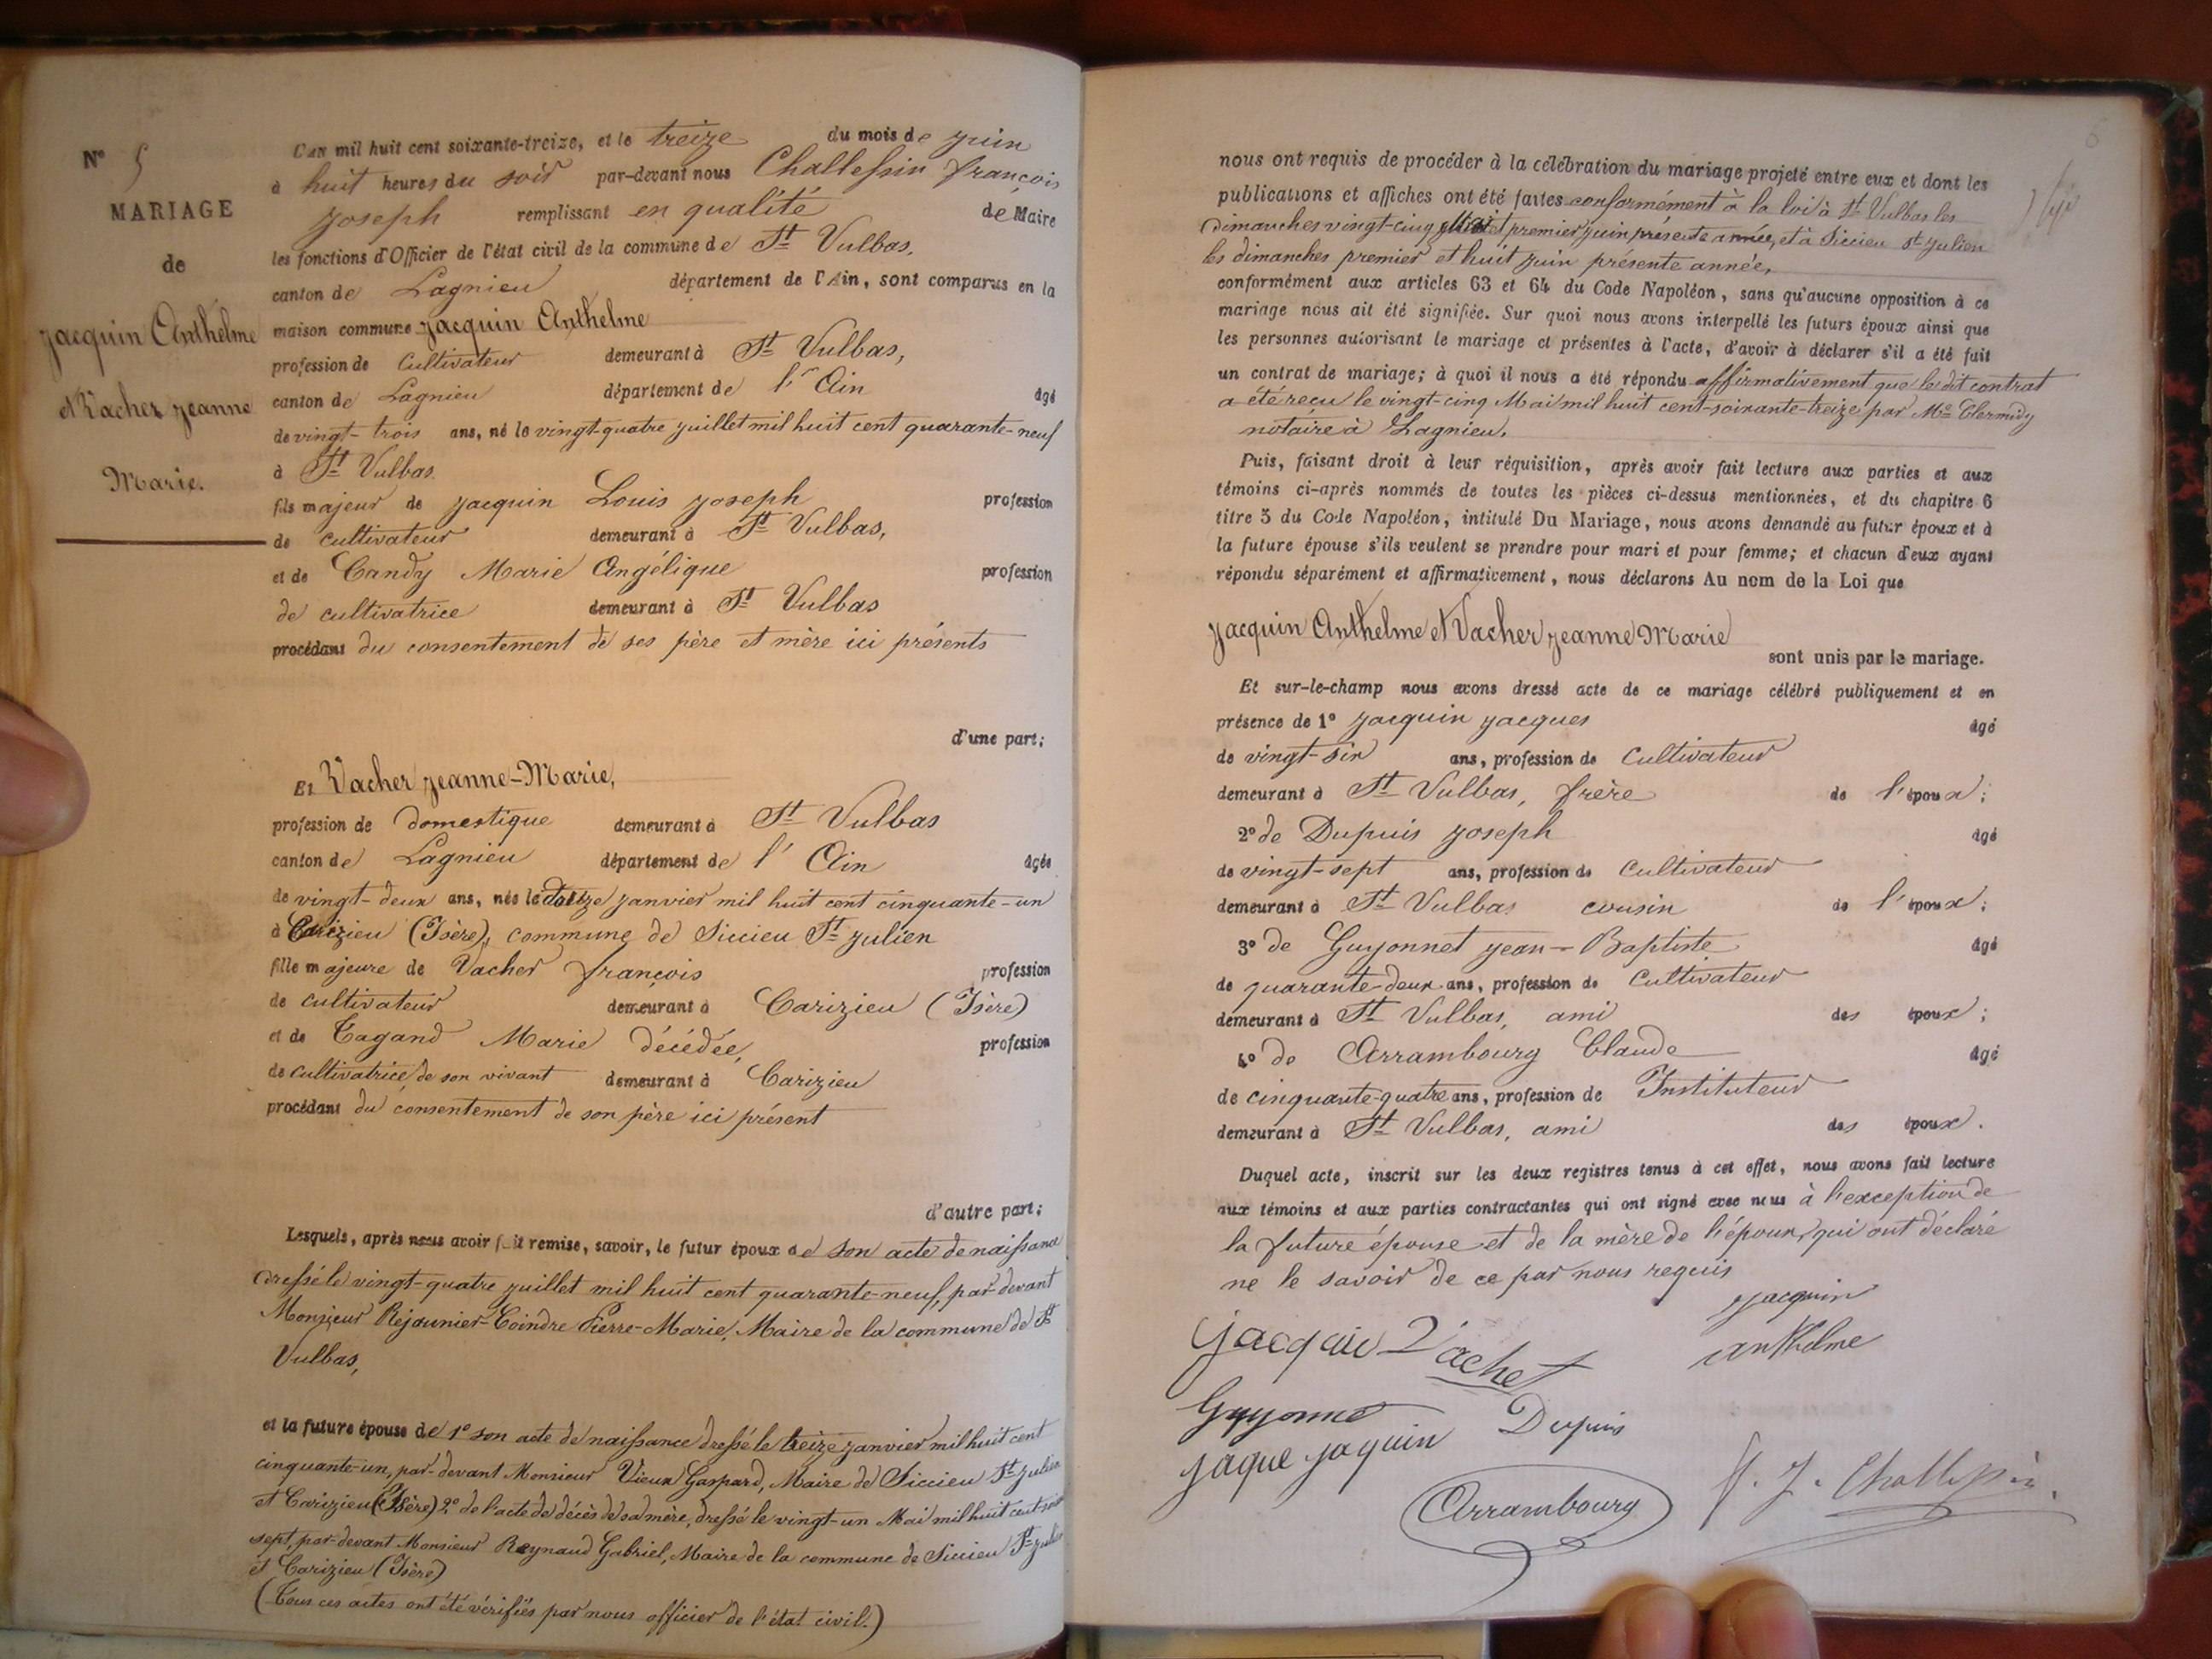 N° 5
MARIAGE
de
Jacquin Anthelme
et Vacher Jeanne
Marie.
L'an mil huit cent soixante-treize, et le treize du mois de juin
à huit heures du soir par-devant nous Challessin françois
Joseph remplissant en qualité de Maire
les fonctions d'Officier de l'état civil de la commune de St Vulbas,
canton de Lagnieu département de l'Ain, sont comparus en la
maison commune Jacquin Anthelme
profession de Cultivateur demeurant à St Vulbas,
canton de Lagnieu département de l'Ain âgé
de vingt-trois ans, né le vingt-quatre juillet mil huit cent quarante-neuf
à St Vulbas.
fils majeur de Jacquin Louis Joseph profession
de cultivateur demeurant à St Vulbas,
et de Candy Marie Angélique profession
de cultivatrice demeurant à St Vulbas
procédant du consentement de ses père et mère ici présents
d'une part;
Et Vacher Jeanne-Marie,
profession de domestique demeurant à St Vulbas
canton de Lagnieu département de l'Ain âgée
de vingt-deux ans, née le janvier mil huit cent cinquante-un
à Carizieu (Isère), commune de Siccieu St Julien
fille majeure de Vacher françois profession
de cultivateur demeurant à Carizieu (Isère)
et de Tagand Marie décédée, profession
de cultivatrice de son vivant demeurant à Carizieu
procédant du consentement de son père ici présent
d'autre part;
Lesquels, après nous avoir fait remise, savoir, le futur époux de son acte de naissance
dressé le vingt-quatre juillet mil huit cent quarante-neuf, par-devant
Monsieur Réjaunier-Coindre Pierre-Marie, Maire de la commune de St
Vulbas,
et la future épouse de 1° son acte de naissance dressé le treize janvier mil huit cent
cinquante-un, par-devant Monsieur Vieux Gaspard, Maire de Siccieu St Julien
et Carizieu (Isère) 2° de l'acte de décès de sa mère, dressé le vingt-un Mai mil huit cent
sept, par-devant Monsieur Reynaud Gabriel, Maire de la commune de Siccieu St Julien
et Carizieu (Isère)
(Tous ces actes ont été vérifiés par nous officier de l'état civil.)
nous ont requis de procéder à la célébration du mariage projeté entre eux et dont les
publications et affiches ont été faites conformément à la loi à St Vulbas les
dimanches vingt-cinq Mai et premier juin présente année, et à Siccieu St Julien
les dimanches premier et huit juin présente année,
conformément aux articles 63 et 64 du Code Napoléon, sans qu'aucune opposition à ce
mariage nous ait été signifiée. Sur quoi nous avons interpellé les futurs époux ainsi que
les personnes autorisant le mariage et présentes à l'acte, d'avoir à déclarer s'il a été fait
un contrat de mariage; à quoi il nous a été répondu affirmativement que le dit contrat
a été reçu le vingt-cinq Mai mil huit cent-soixante-treize par Me Clermidy
notaire à Lagnieu.
Puis, faisant droit à leur réquisition, après avoir fait lecture aux parties et aux
témoins ci-après nommés de toutes les pièces ci-dessus mentionnées, et du chapitre 6
titre 5 du Code Napoléon, intitulé Du Mariage, nous avons demandé au futur époux et à
la future épouse s'ils veulent se prendre pour mari et pour femme; et chacun d'eux ayant
répondu séparément et affirmativement, nous déclarons Au nom de la Loi que
Jacquin Anthelme et Vacher Jeanne Marie
sont unis par le mariage.
Et sur-le-champ nous avons dressé acte de ce mariage célébré publiquement et en
présence de 1° Jacquin Jacques âgé
de vingt-six ans, profession de Cultivateur
demeurant à St Vulbas, frère de l'époux;
2° de Dupuis Joseph âgé
de vingt-sept ans, profession de Cultivateur
demeurant à St Vulbas cousin de l'époux;
3° de Guyonnet Jean-Baptiste âgé
de quarante-deux ans, profession de Cultivateur
demeurant à St Vulbas, ami des époux;
4° de Arrambourg Claude âgé
de cinquante-quatre ans, profession de Instituteur
demeurant à St Vulbas, ami des époux.
Duquel acte, inscrit sur les deux registres tenus à cet effet, nous avons fait lecture
aux témoins et aux parties contractantes qui ont signé avec nous à l'exception de
la future épouse et de la mère de l'époux, qui ont déclaré
ne le savoir de ce par nous requis
Jacquin
anthelme
Jacquin Vachet
Guyonnet Dupuis
Jaque Jaquin
Arrambourg F. J. Challessin.